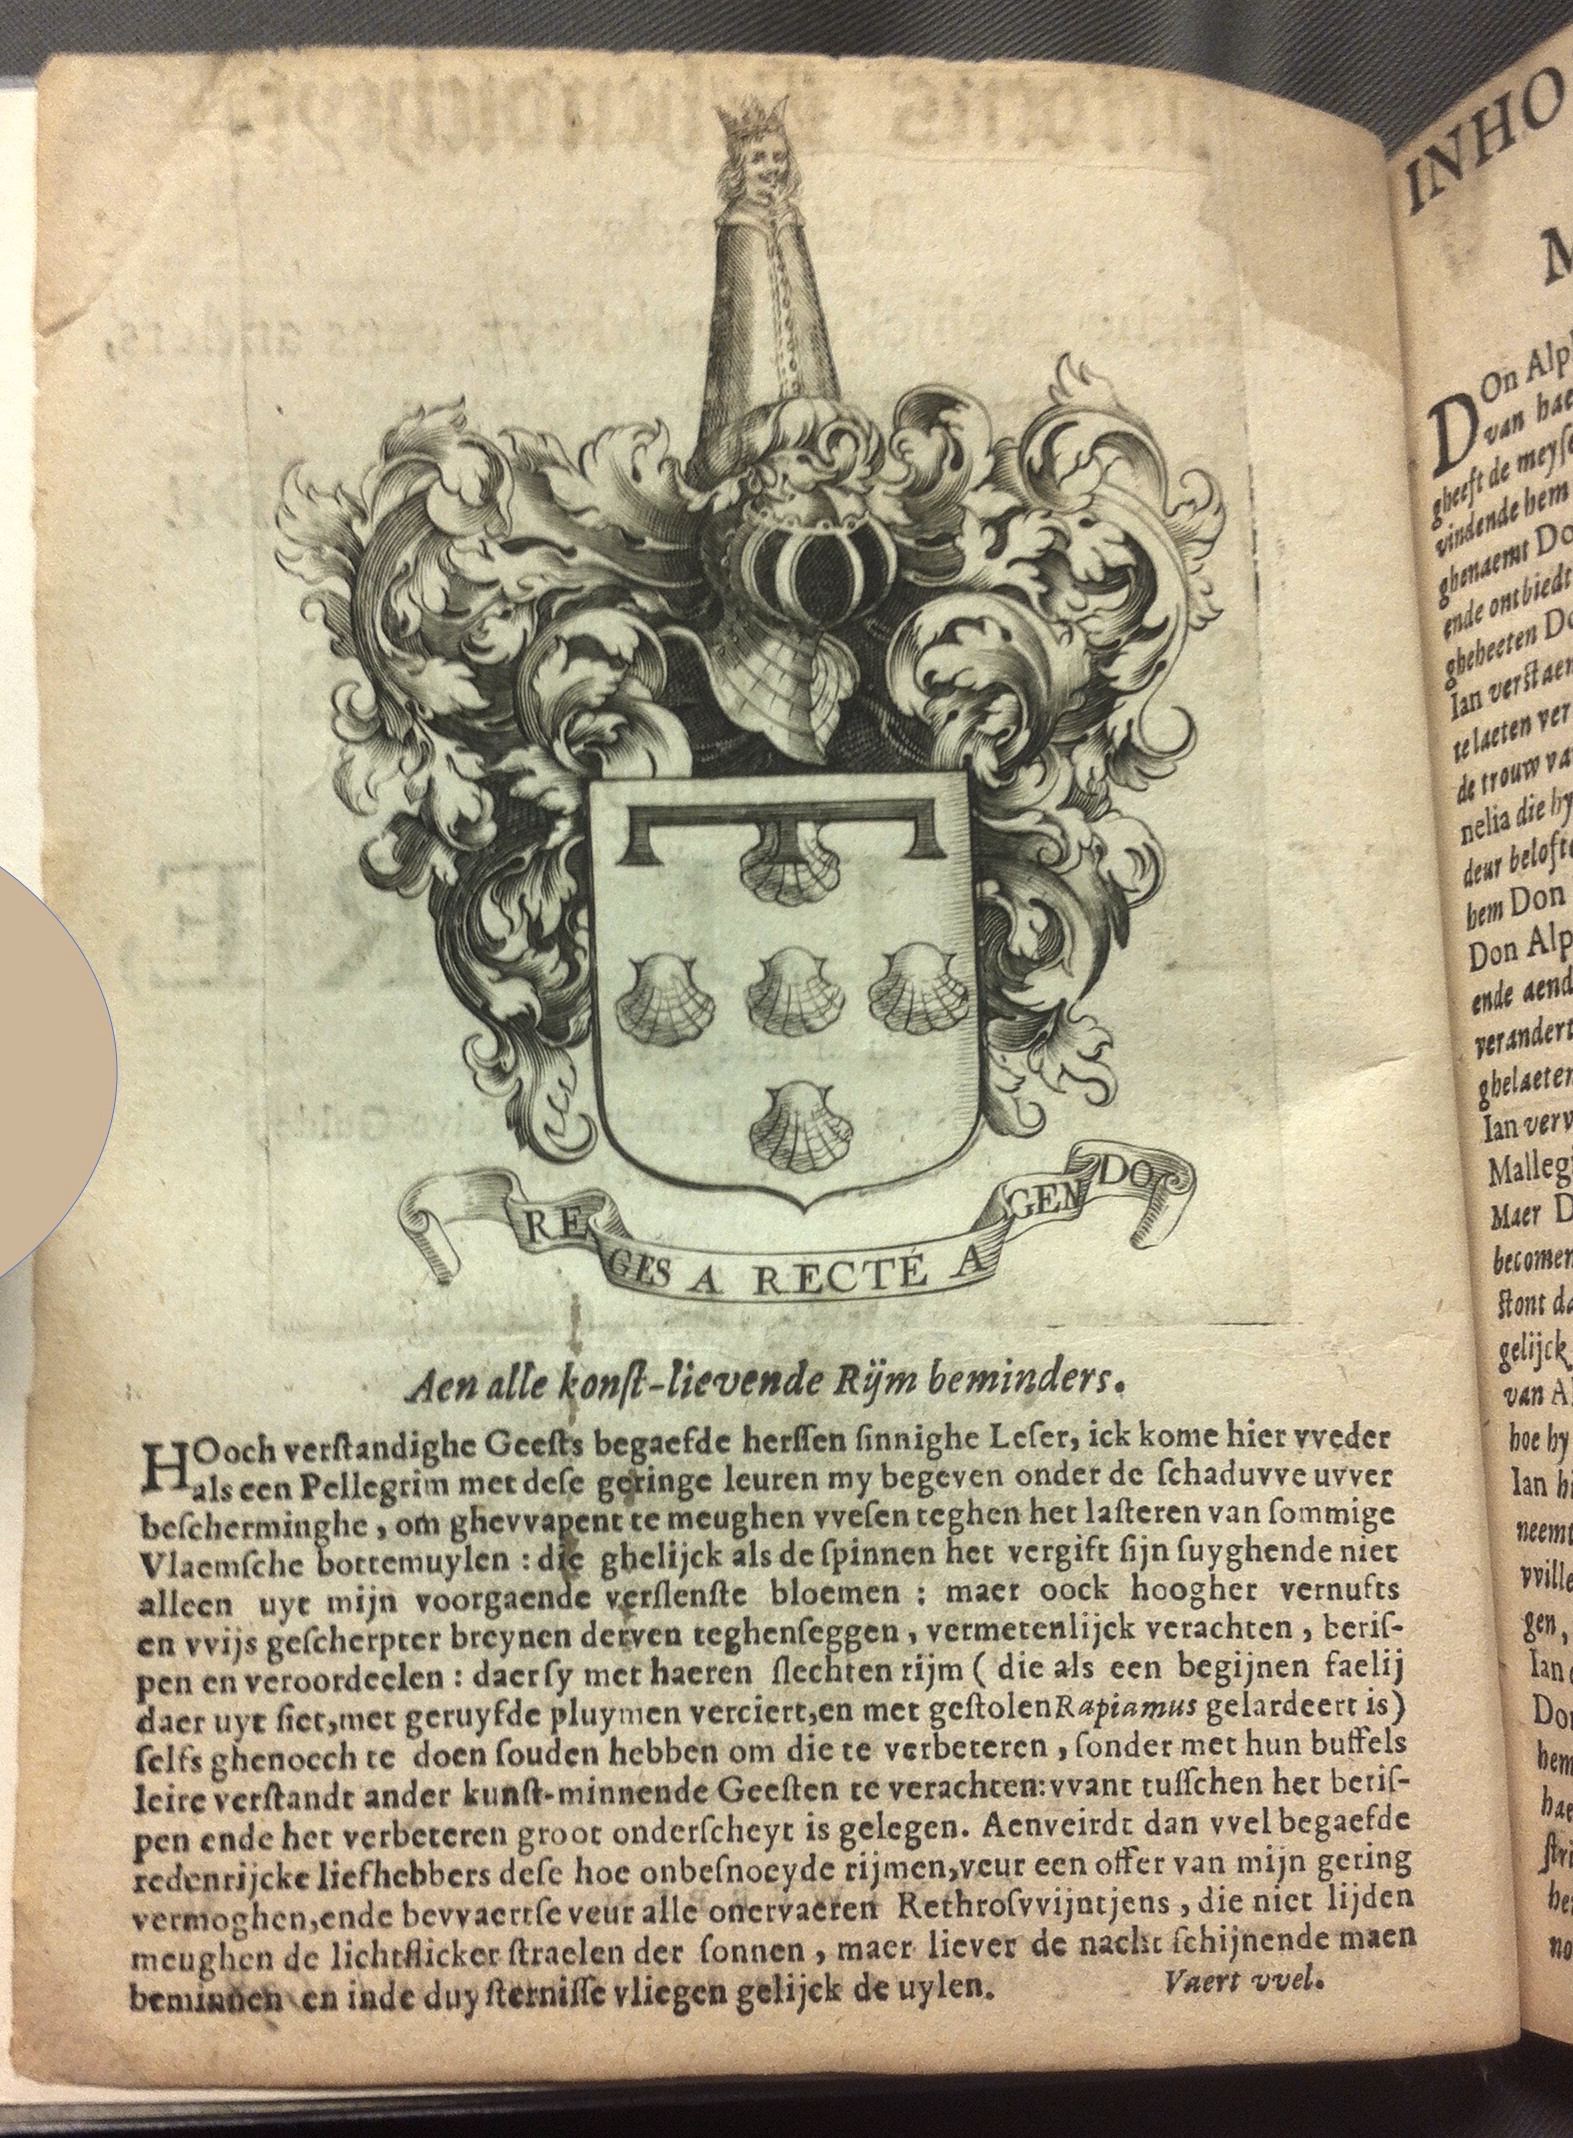 REGES A RECTÉ AGENDO
Aen alle konſt-lievende Rijm beminders.
HOoch verſtandighe Geeſts begaefde herſſen ſinnighe Leſer, ick kome hier vveder
als een Pellegrim met deſe geringe leuren my begeven onder de ſchaduvve uvver
beſcherminghe, om ghevvapent te meughen vveſen teghen het laſteren van ſommige
Vlaemſche bottemuylen : die ghelijck als de ſpinnen het vergift ſijn ſuyghende niet
alleen uyt mijn voorgaende verſlenſte bloemen ; maer oock hoogher vernufts
en vvijs geſcherpter breynen derven teghenſeggen, vermetenlijck verachten, beriſ-
pen en veroordeelen : daer ſy met haeren ſlechten rijm ( die als een begijnen faelij
daer uyt ſiet,met geruyfde pluymen verciert,en met geſtolen Rapiamus gelardeert is)
ſelfs ghenoech te doen ſouden hebben om die te verbeteren, ſonder met hun buffels
leire verſtandt ander kunſt-minnende Geeſten te verachten: vvant tuſſchen het beriſ-
pen ende het verbeteren groot onderſcheyt is gelegen. Aenveirdt dan vvel begaefde
redenrijcke liefhebbers deſe hoe onbeſnoeyde rijmen,veur een offer van mijn gering
vermoghen,ende bevvaertſe veur alle onervaeren Rethroſvvijntjens, die niet lijden
meughen de lichtflicker ſtraelen der ſonnen, maer liever de nacht ſchijnende maen
beminnen en inde duyſterniſſe vliegen gelijck de uylen.
Vaert vvel.
INHO
M
DOn Alp
van hae
gheeft de meyſ
vindende hem
ghenaemt Do
ende ontbiedt
gheheeten Do
Ian verſtaen
te laeten ver
de trouw va
nelia die hy
deur belofte
hem Don
Don Alp
ende aend
verandert
ghelaeten
Ian verv
Mallegi
Maer D
becomen
ſtont da
gelijck
van A
hoe hy
Ian hi
neemt
vville
gen,
Ian
Don
hem
hae
ſtri
he
no